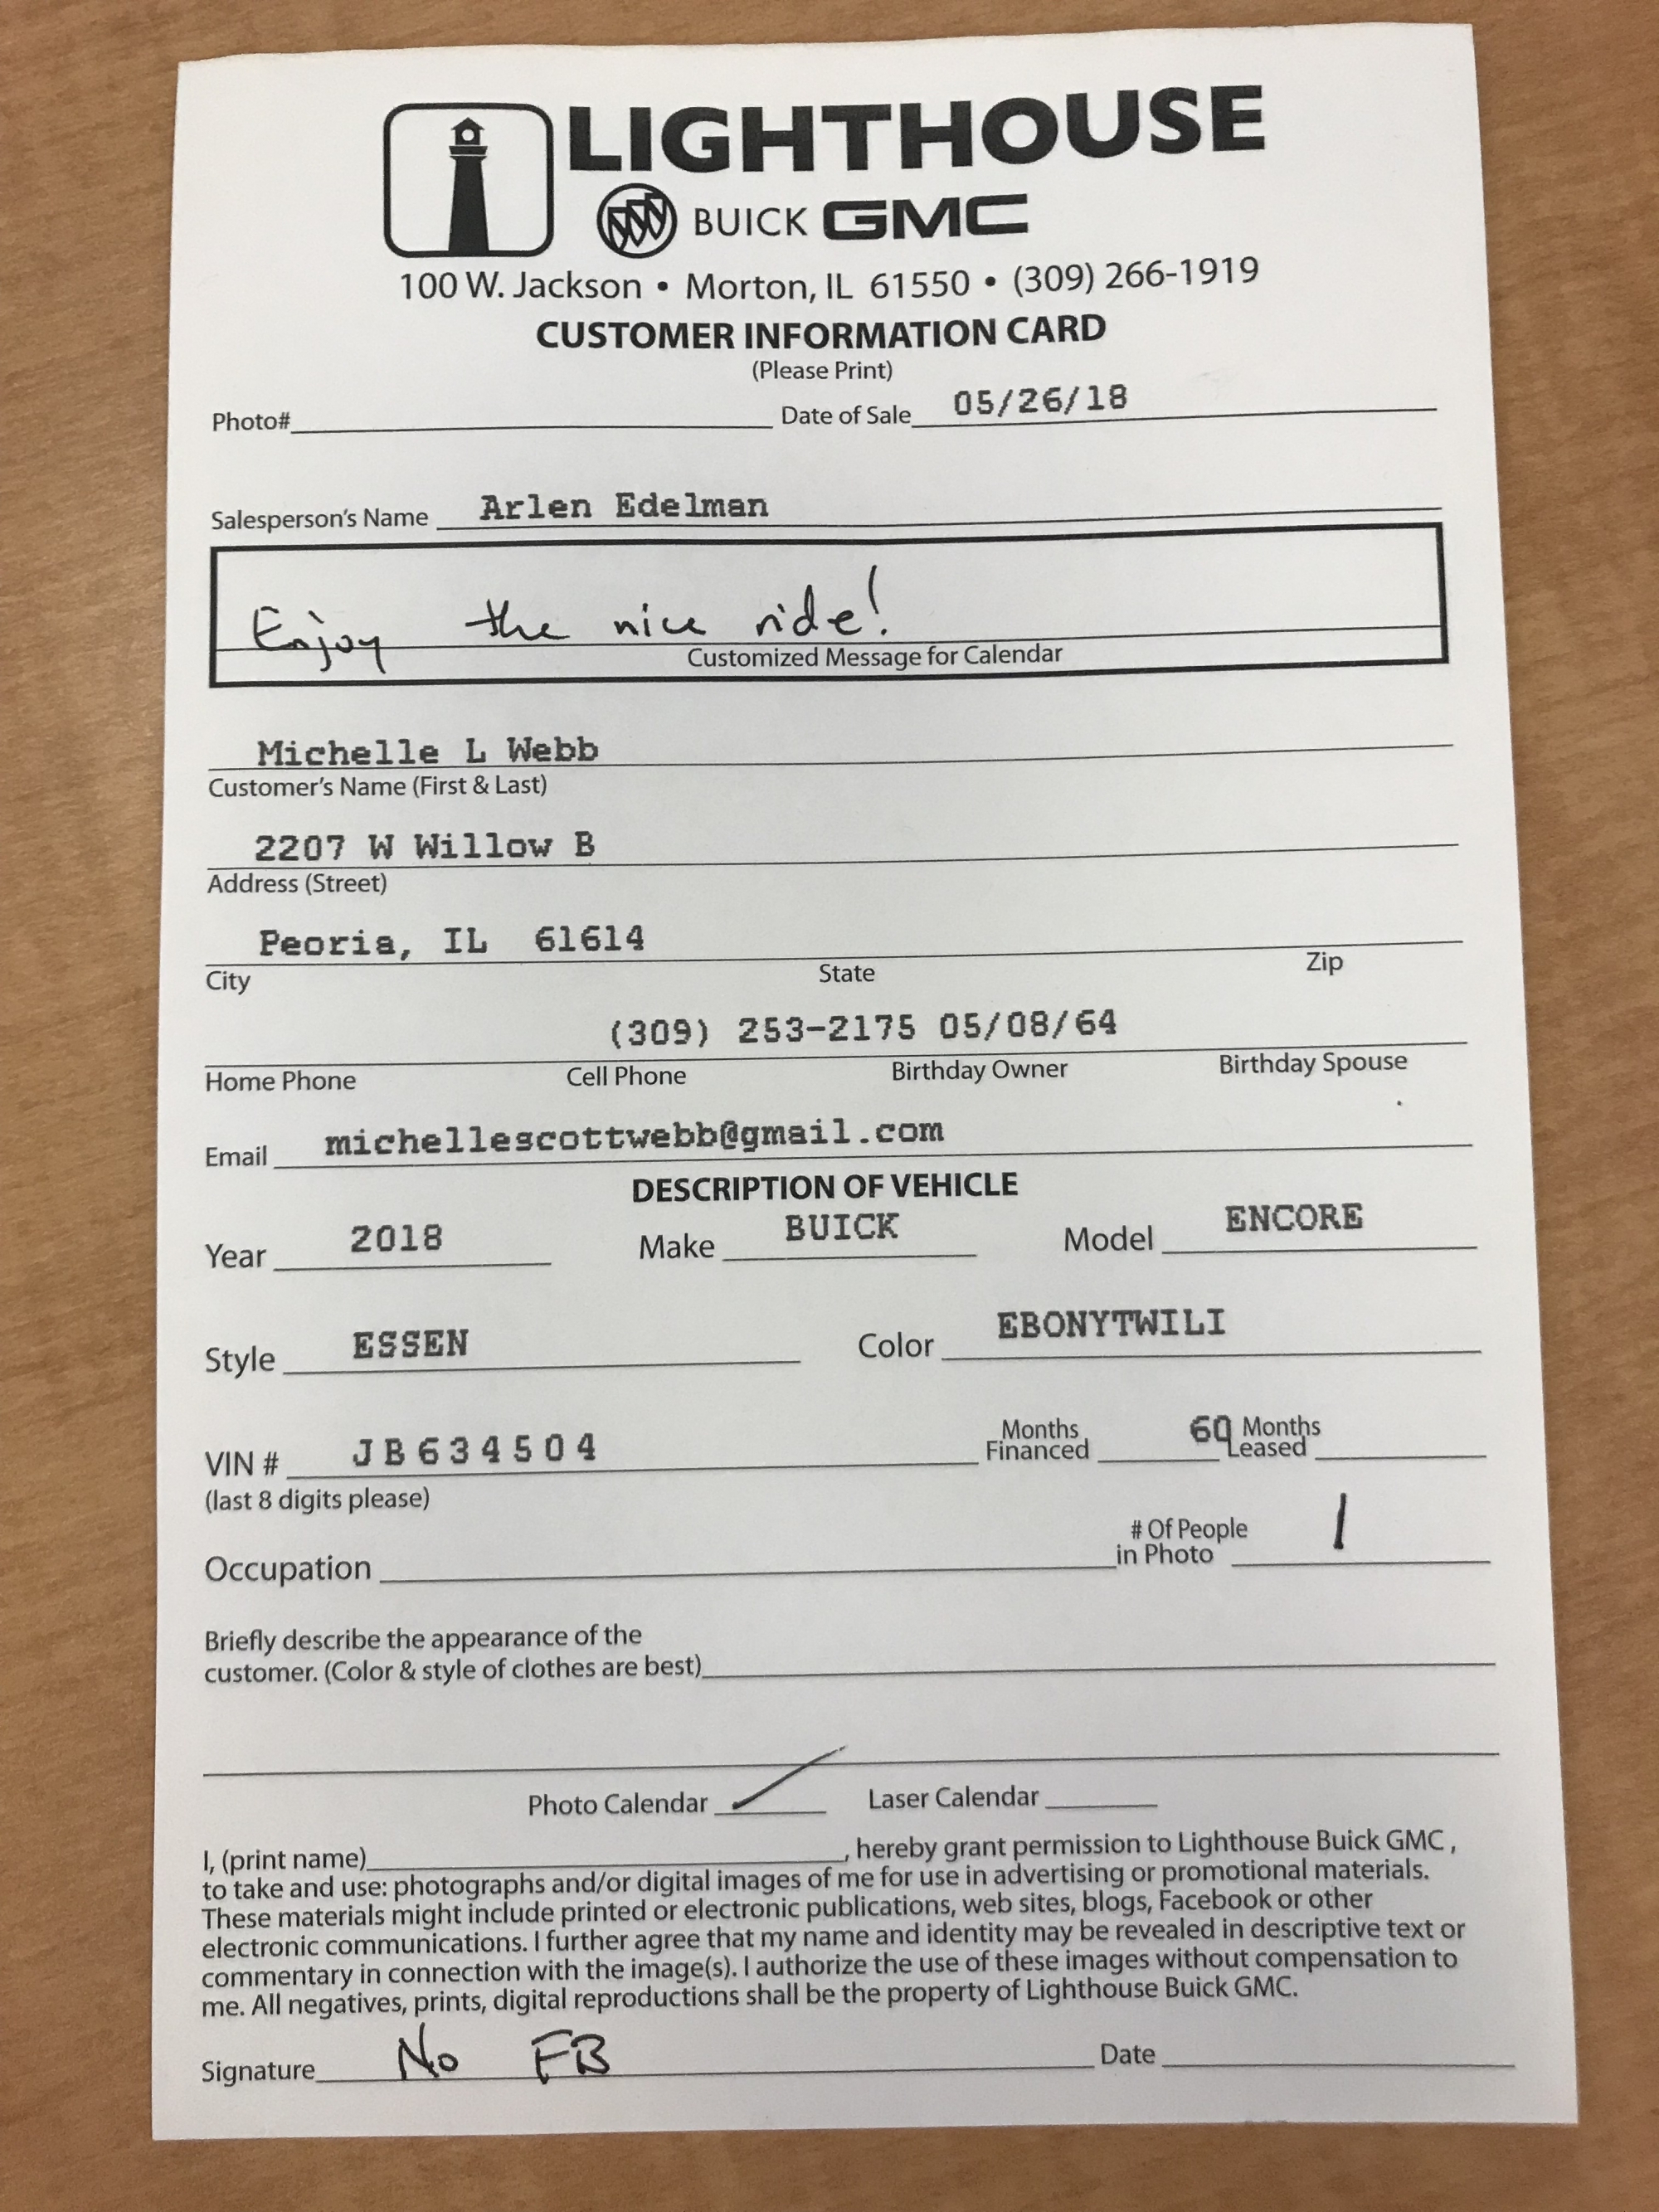 LIGHTHOUSE
BUICK GMC
100 W. Jackson • Morton, IL 61550 • (309) 266-1919
CUSTOMER INFORMATION CARD
(Please Print)
Photo# Date of Sale 05/26/18
Salesperson's Name Arlen Edelman
Enjoy the nice ride!
Customized Message for Calendar
Michelle L Webb
Customer's Name (First & Last)
2207 W Willow B
Address (Street)
Peoria, IL 61614
City State Zip
(309) 253-2175 05/08/64
Home Phone Cell Phone Birthday Owner Birthday Spouse
Email michellescottwebb@gmail.com
DESCRIPTION OF VEHICLE
Year 2018 Make BUICK Model ENCORE
Style ESSEN Color EBONYTWILI
VIN # JB634504 Months Financed 60 Months Leased
(last 8 digits please)
Occupation # Of People in Photo 1
Briefly describe the appearance of the
customer. (Color & style of clothes are best)
Photo Calendar Laser Calendar
I, (print name) , hereby grant permission to Lighthouse Buick GMC ,
to take and use: photographs and/or digital images of me for use in advertising or promotional materials.
These materials might include printed or electronic publications, web sites, blogs, Facebook or other
electronic communications. I further agree that my name and identity may be revealed in descriptive text or
commentary in connection with the image(s). I authorize the use of these images without compensation to
me. All negatives, prints, digital reproductions shall be the property of Lighthouse Buick GMC.
Signature No FB Date